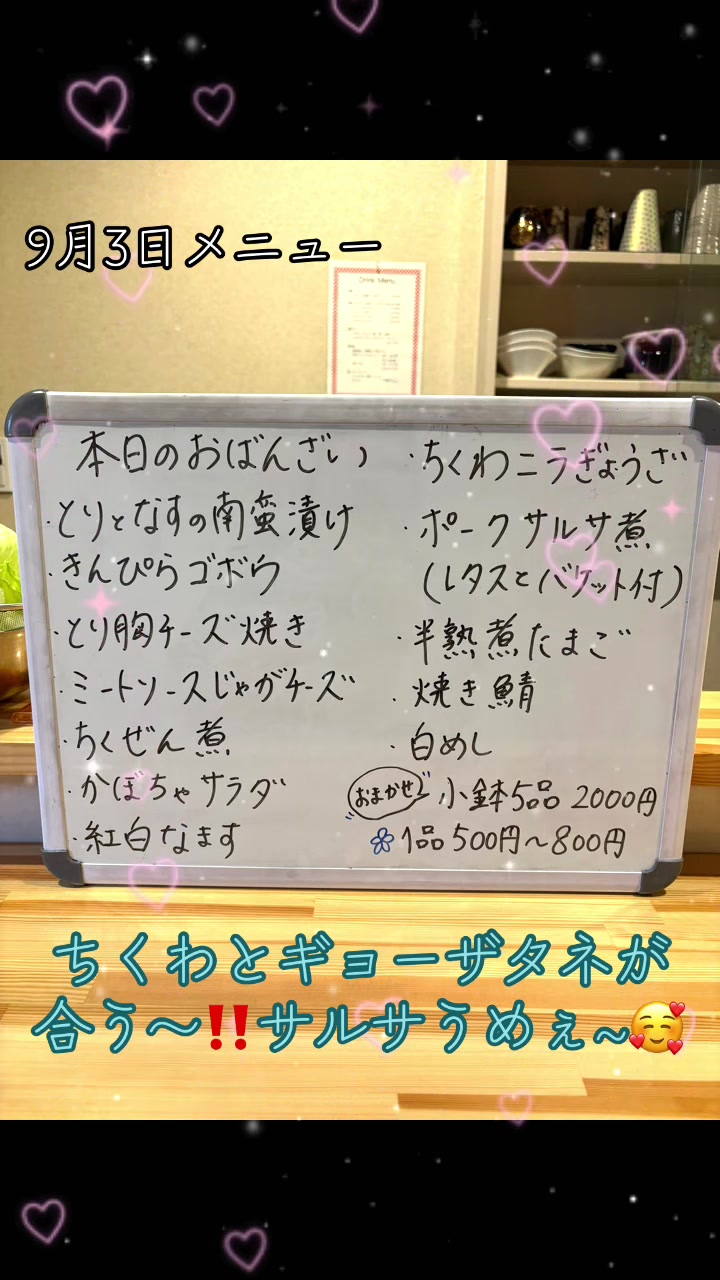 9月3日メニュー
Drink Menu
本日のおばんざい
・とりとなすの南蛮漬け
・きんぴらゴボウ
・とり胸チーズ焼き
・ミートソースじゃがチーズ
・ちくぜん煮
・かぼちゃサラダ
・紅白なます
・ちくわニラぎょうざ
・ポークサルサ煮
(レタスとバケット付)
・半熟煮たまご
・焼き鯖
・白めし
おまかせ 小鉢5品 2000円
1品500円〜800円
ちくわとギョーザタネが
合う〜‼️サルサうめぇ~🥰